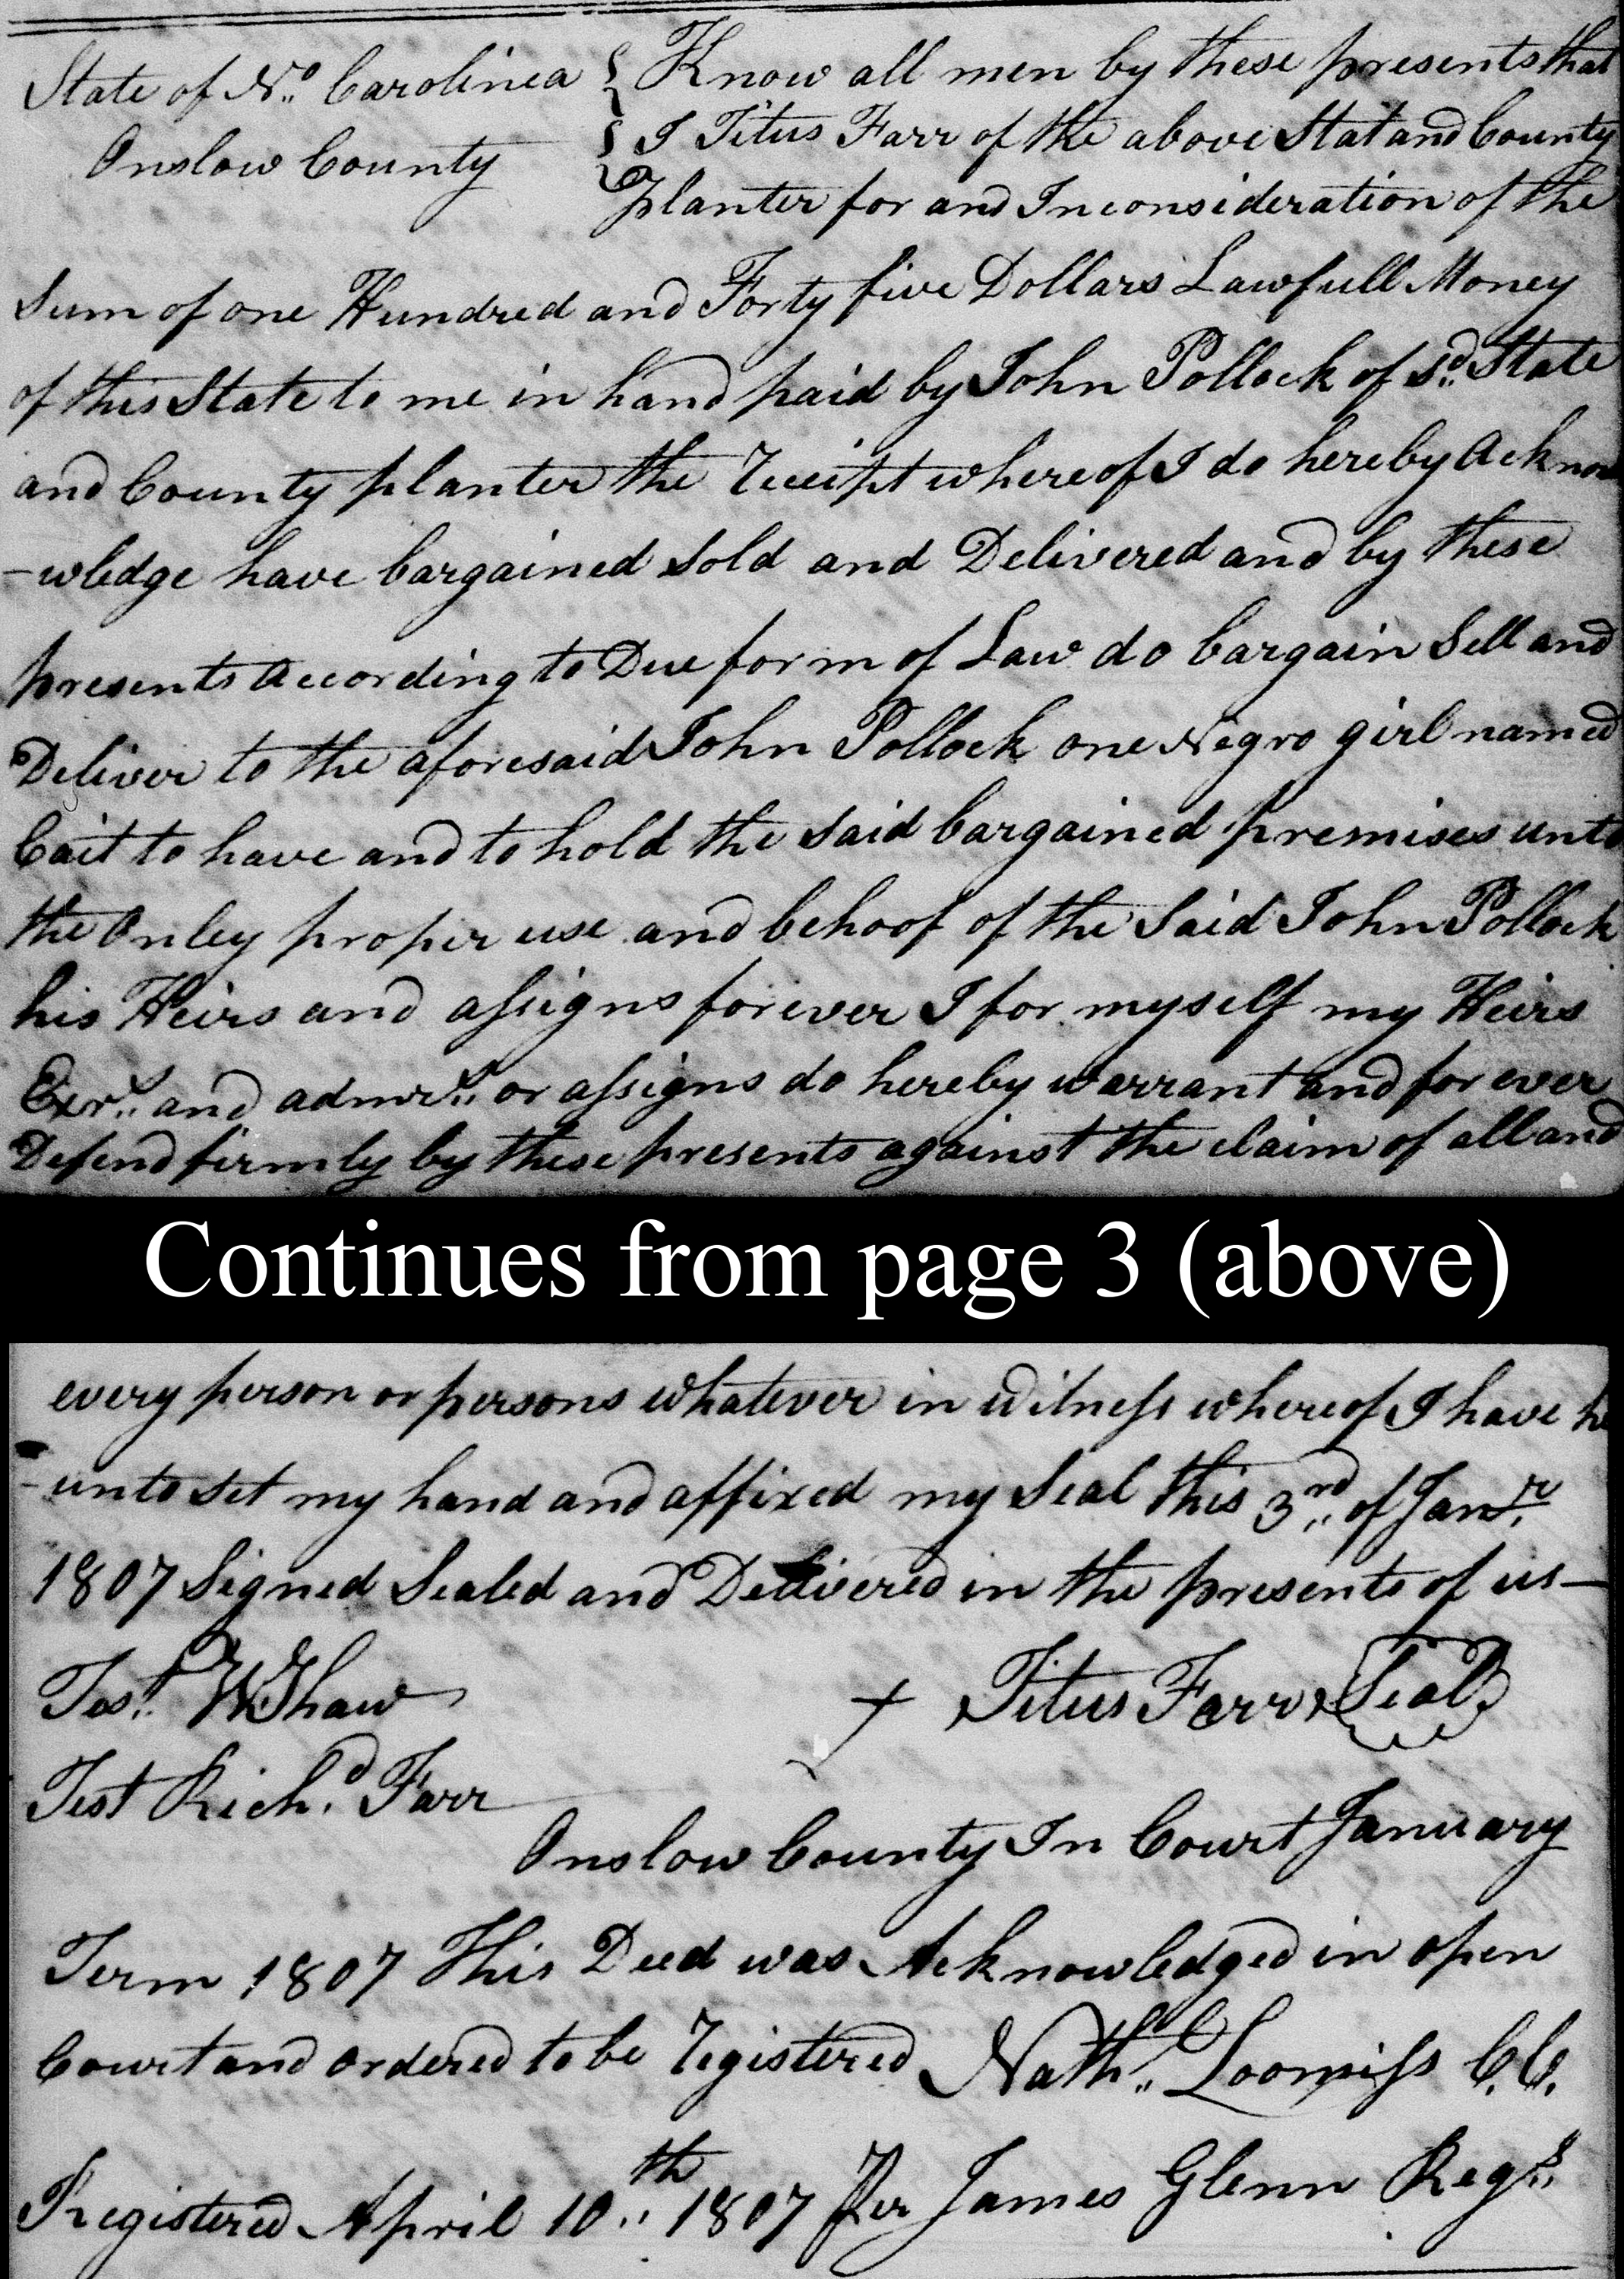 State of No. Carolinea { Know all men by these presents that
{ I Titus Farr of the above Stat and County
Onslow County
Planter for and Inconsideration of the
Sum of one Hundred and Forty five Dollars Lawfull Money
of this State to me in hand paid by John Pollock of sd. State
and County planter the receipt whereof I do hereby Acknow
-wledge have bargained Sold and Delivered and by these
presents According to Due form of Law do bargain Sell and
Deliver to the aforesaid John Pollock one Negro girl named
Cait to have and to hold the Said bargained premises unto
the Onley proper use and behoof of the Said John Pollock
his Heirs and assigns forever I for myself my Heirs
Exrs. and admrs. or assigns do hereby warrant and for ever
Defend firmly by these presents against the claim of all and
Continues from page 3 (above)
every person or persons whatever in Witness whereof I have he
-unto Set my hand and affixed my Seal this 3rd of Janr.
1807 Signed Sealed and Delivered in the presents of us—
Test. W Shaw + Titus Farr Seal
Test Richd. Farr
Onslow County In Court January
Term 1807 This Deed was Acknowledged in open
Court and ordered to be registered Nath. Loomiss C.C.
Registered April 10th 1807 Per James Glenn Regr.